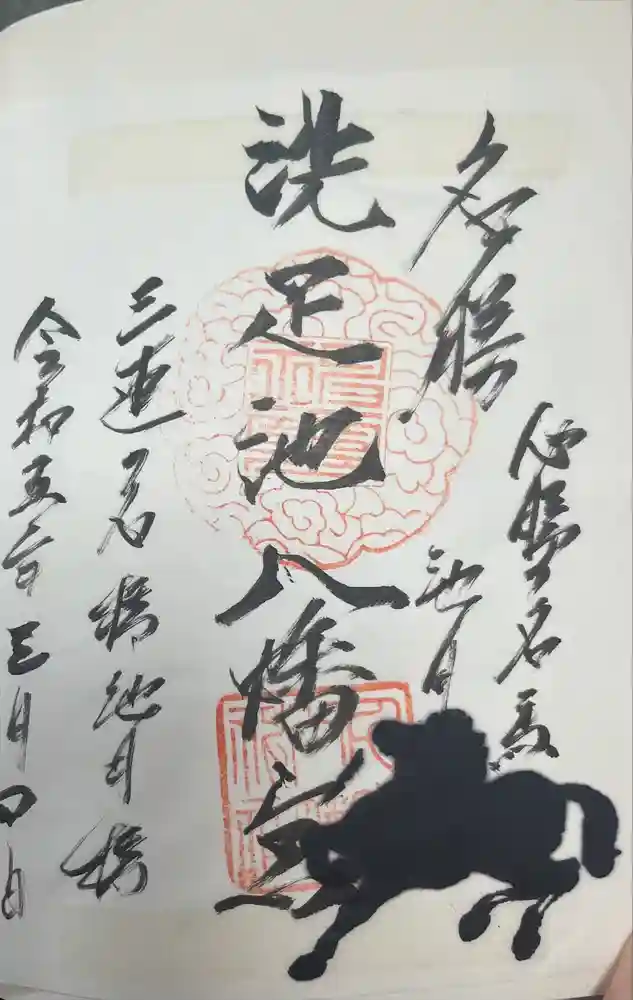 名勝
必勝名馬
池月
洗足池八幡宮
三連
名橋池月橋
令和五年三月四日